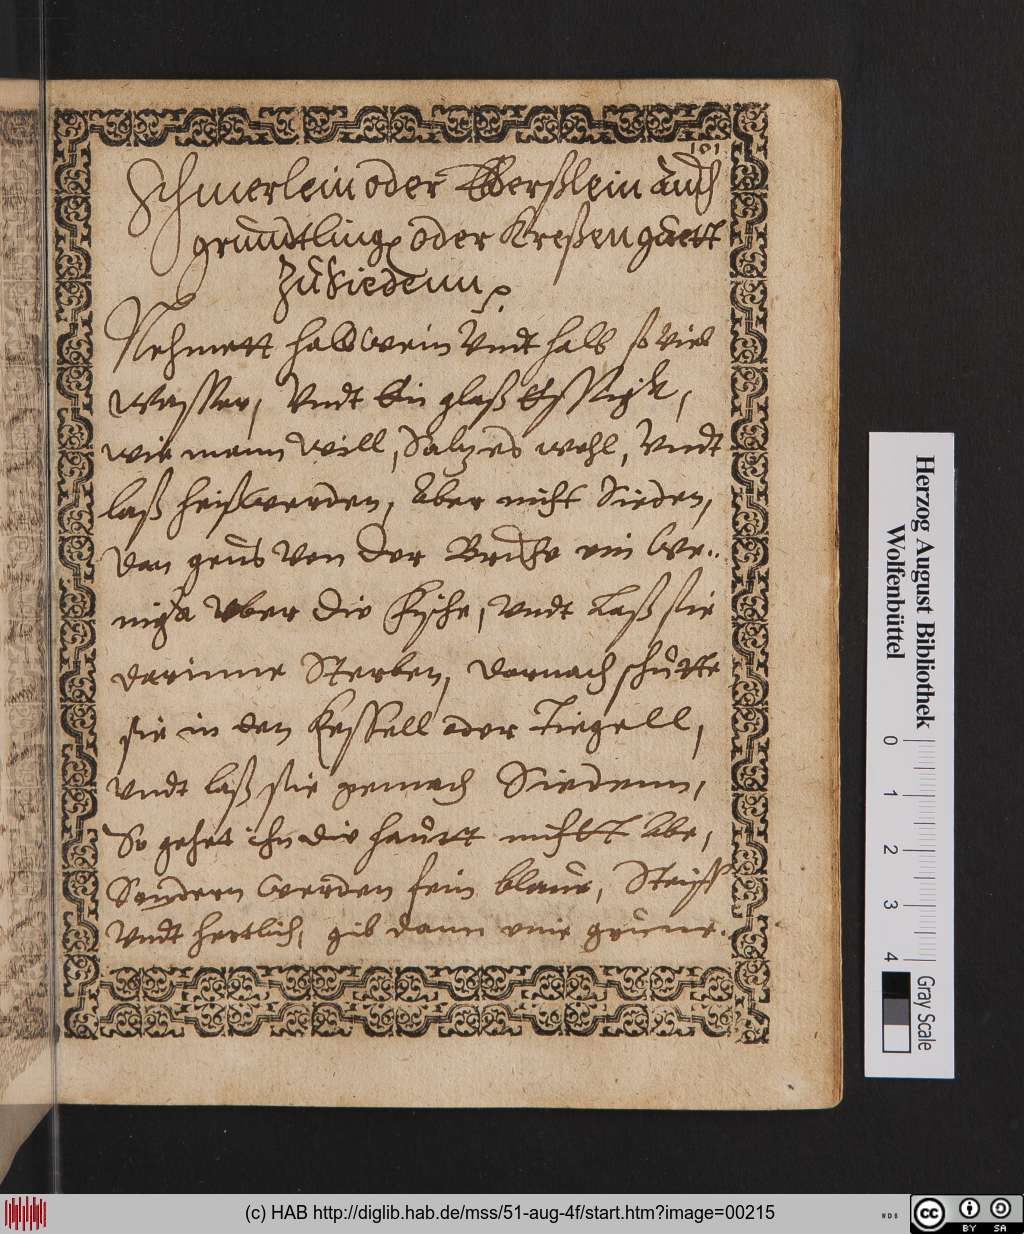 101
Schmerlein oder Eberßlein auch
grundtling oder Kreßen guett
Zu Siedenn
Nehmett halb wein Vndt halb so viel
Wasser, Vndt Ein glaß Essigk,
wie mann will, Saltz es wohl, Vndt
laß heiß werden, Aber nicht Sieden,
dan geus Von der Brühe ein we¬
nigk vber die Fische, Vndt laß sie
darinne Sterben, darnach schütte
sie in den Kessell oder Tiegell,
Vndt laß sie gemach Siedenn,
So gehet ihn die hautt nicht Abe,
Sondern werden fein blaue, Steiff
Vndt herrlich, gib dann eine grüne
Herzog August Bibliothek
Wolfenbüttel
0 1 2 3 4
Gray Scale
(c) HAB http://diglib.hab.de/mss/51-aug-4f/start.htm?image=00215
WDB
cc BY SA